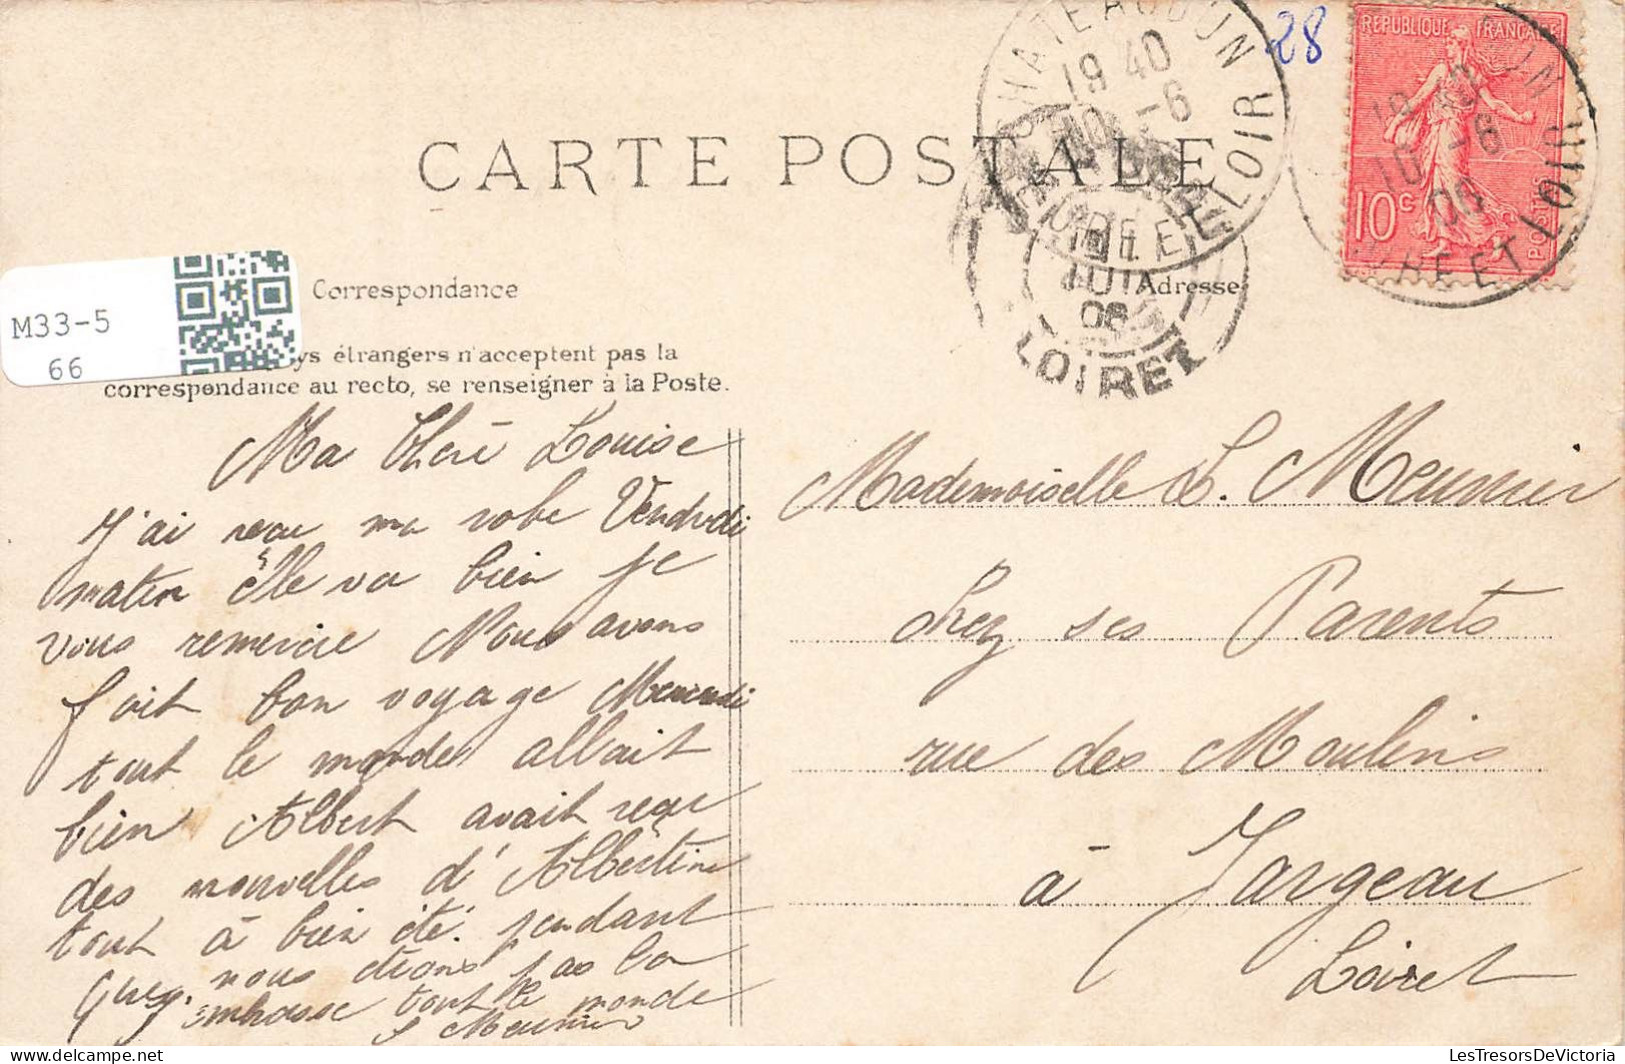 CHATEAUDUN
19 40
10 -6
LOIR
28
REPUBLIQUE FRANÇAISE
10c
POSTES
19 40
10 -6
06
ET LOIR
CARTE POSTALE
JUIN
06
LOIRET
M33-5
66
Correspondance
Adresse
ys étrangers n'acceptent pas la
correspondance au recto, se renseigner à la Poste.
Ma Chère Louise
J'ai reçu ma robe Vendredi
matin elle va bien je
vous remercie Nous avons
fait bon voyage Mercredi
tout le monde allait
bien Albert avait reçu
des nouvelles d'Albertine
tout à bien été. pendant
que nous étions pas la
embrasse tout le monde
Meunier
Mademoiselle L. Meunier
chez ses Parents
rue des Moulins
à Jargeau
Loiret
LesTresorsDeVictoria